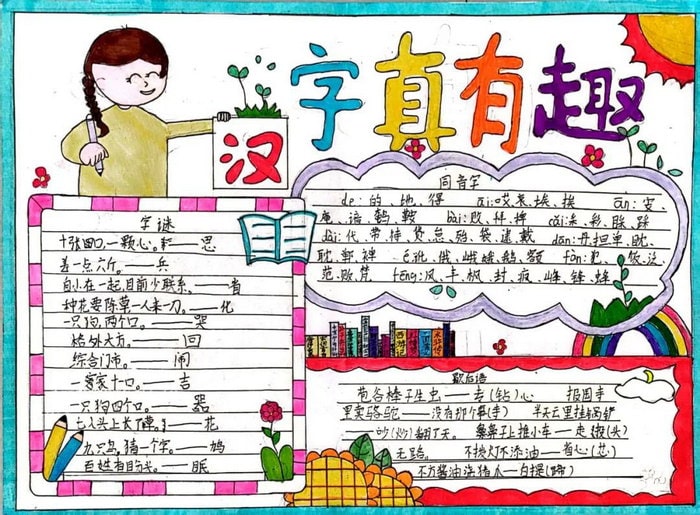 汉字真有趣
字谜
十张口,一颗心。——思
差一点六斤。——兵
自小在一起,目前少联系。——省
种花要除草一人来一刀。——化
一只狗,两个口。——哭
格外大方。——回
综合门市。——闹
一家十口。——吉
一只狗四个口。——器
七人头上长了草。——花
九只鸟,猜一个字。——鸠
百姓有目的头。——眠
同音字
de:的、地、得 āi:哎、哀、埃、挨 ān:安、
庵、谙、鹌、鞍 bài:败、拜、稗 cǎi:采、彩、睬、踩
dài:代、带、待、贷、怠、殆、袋、逮、戴 dān:丹、担、单、眈、
耽、郸、禅 é:讹、俄、峨、娥、鹅、额 fàn:犯、饭、泛、
范、贩、梵 fēng:风、丰、枫、封、疯、峰、锋、蜂
歇后语
苞谷棒子生虫——专(钻)心 报国寺
里卖骆驼——没有那个事(寺) 半天云里挂
——吵(炒)翻了天。 鼻子上推小车——走投(头)
无路。 不挑灯不添油——省心(芯)
不方酱油 猪爪——白提(蹄)